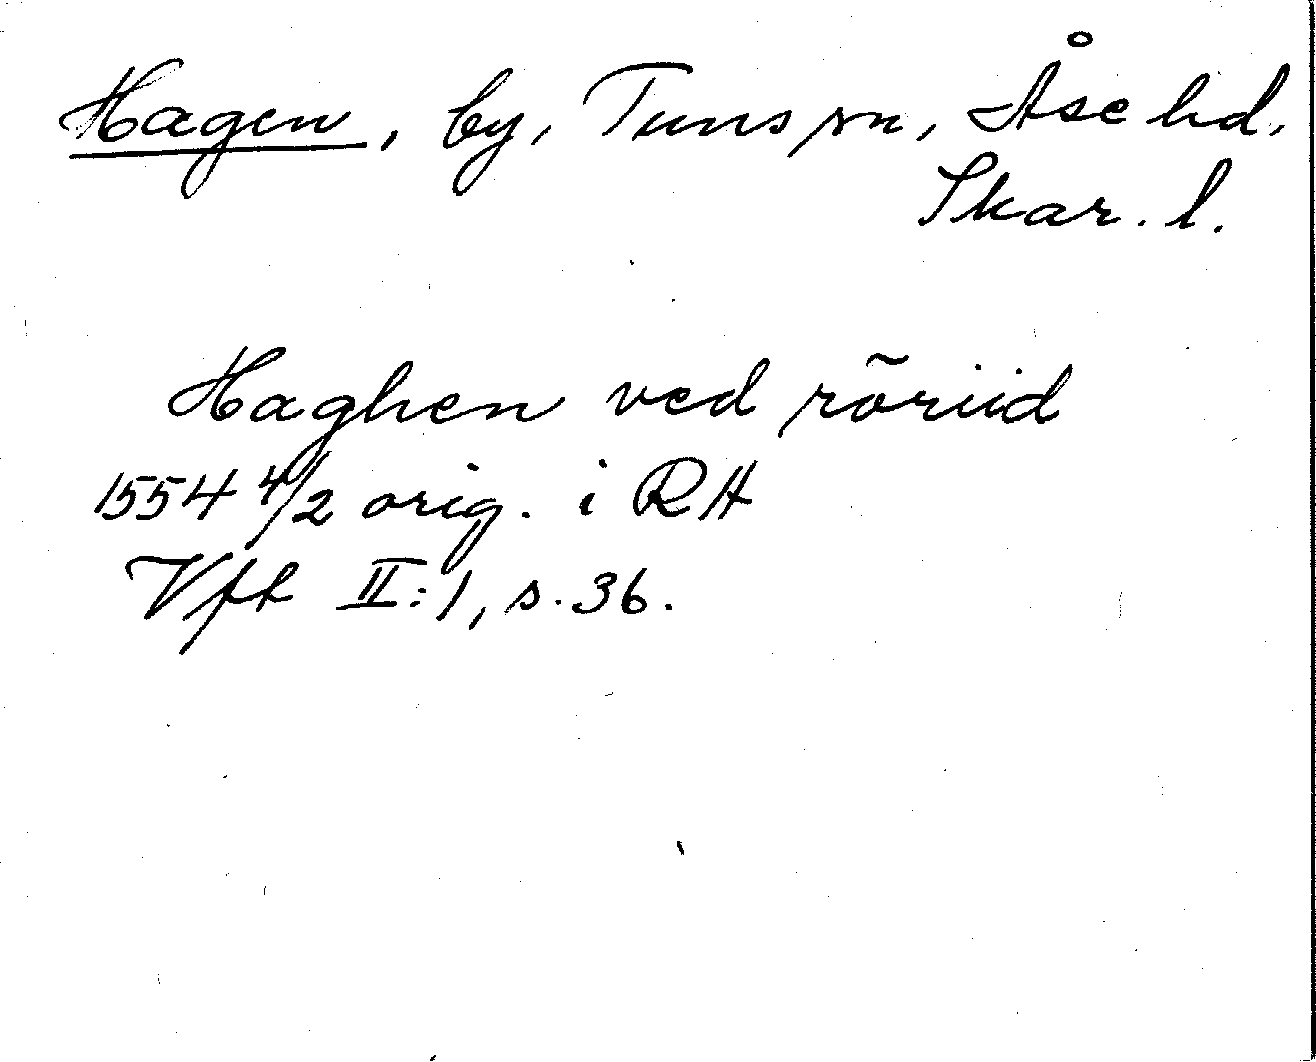 Hagen, by, Tuns sn, Åse hd,
Skar. l.
Haghen ved rõriid
1554 4/2 orig. i RH
Vft II:1, s. 36.